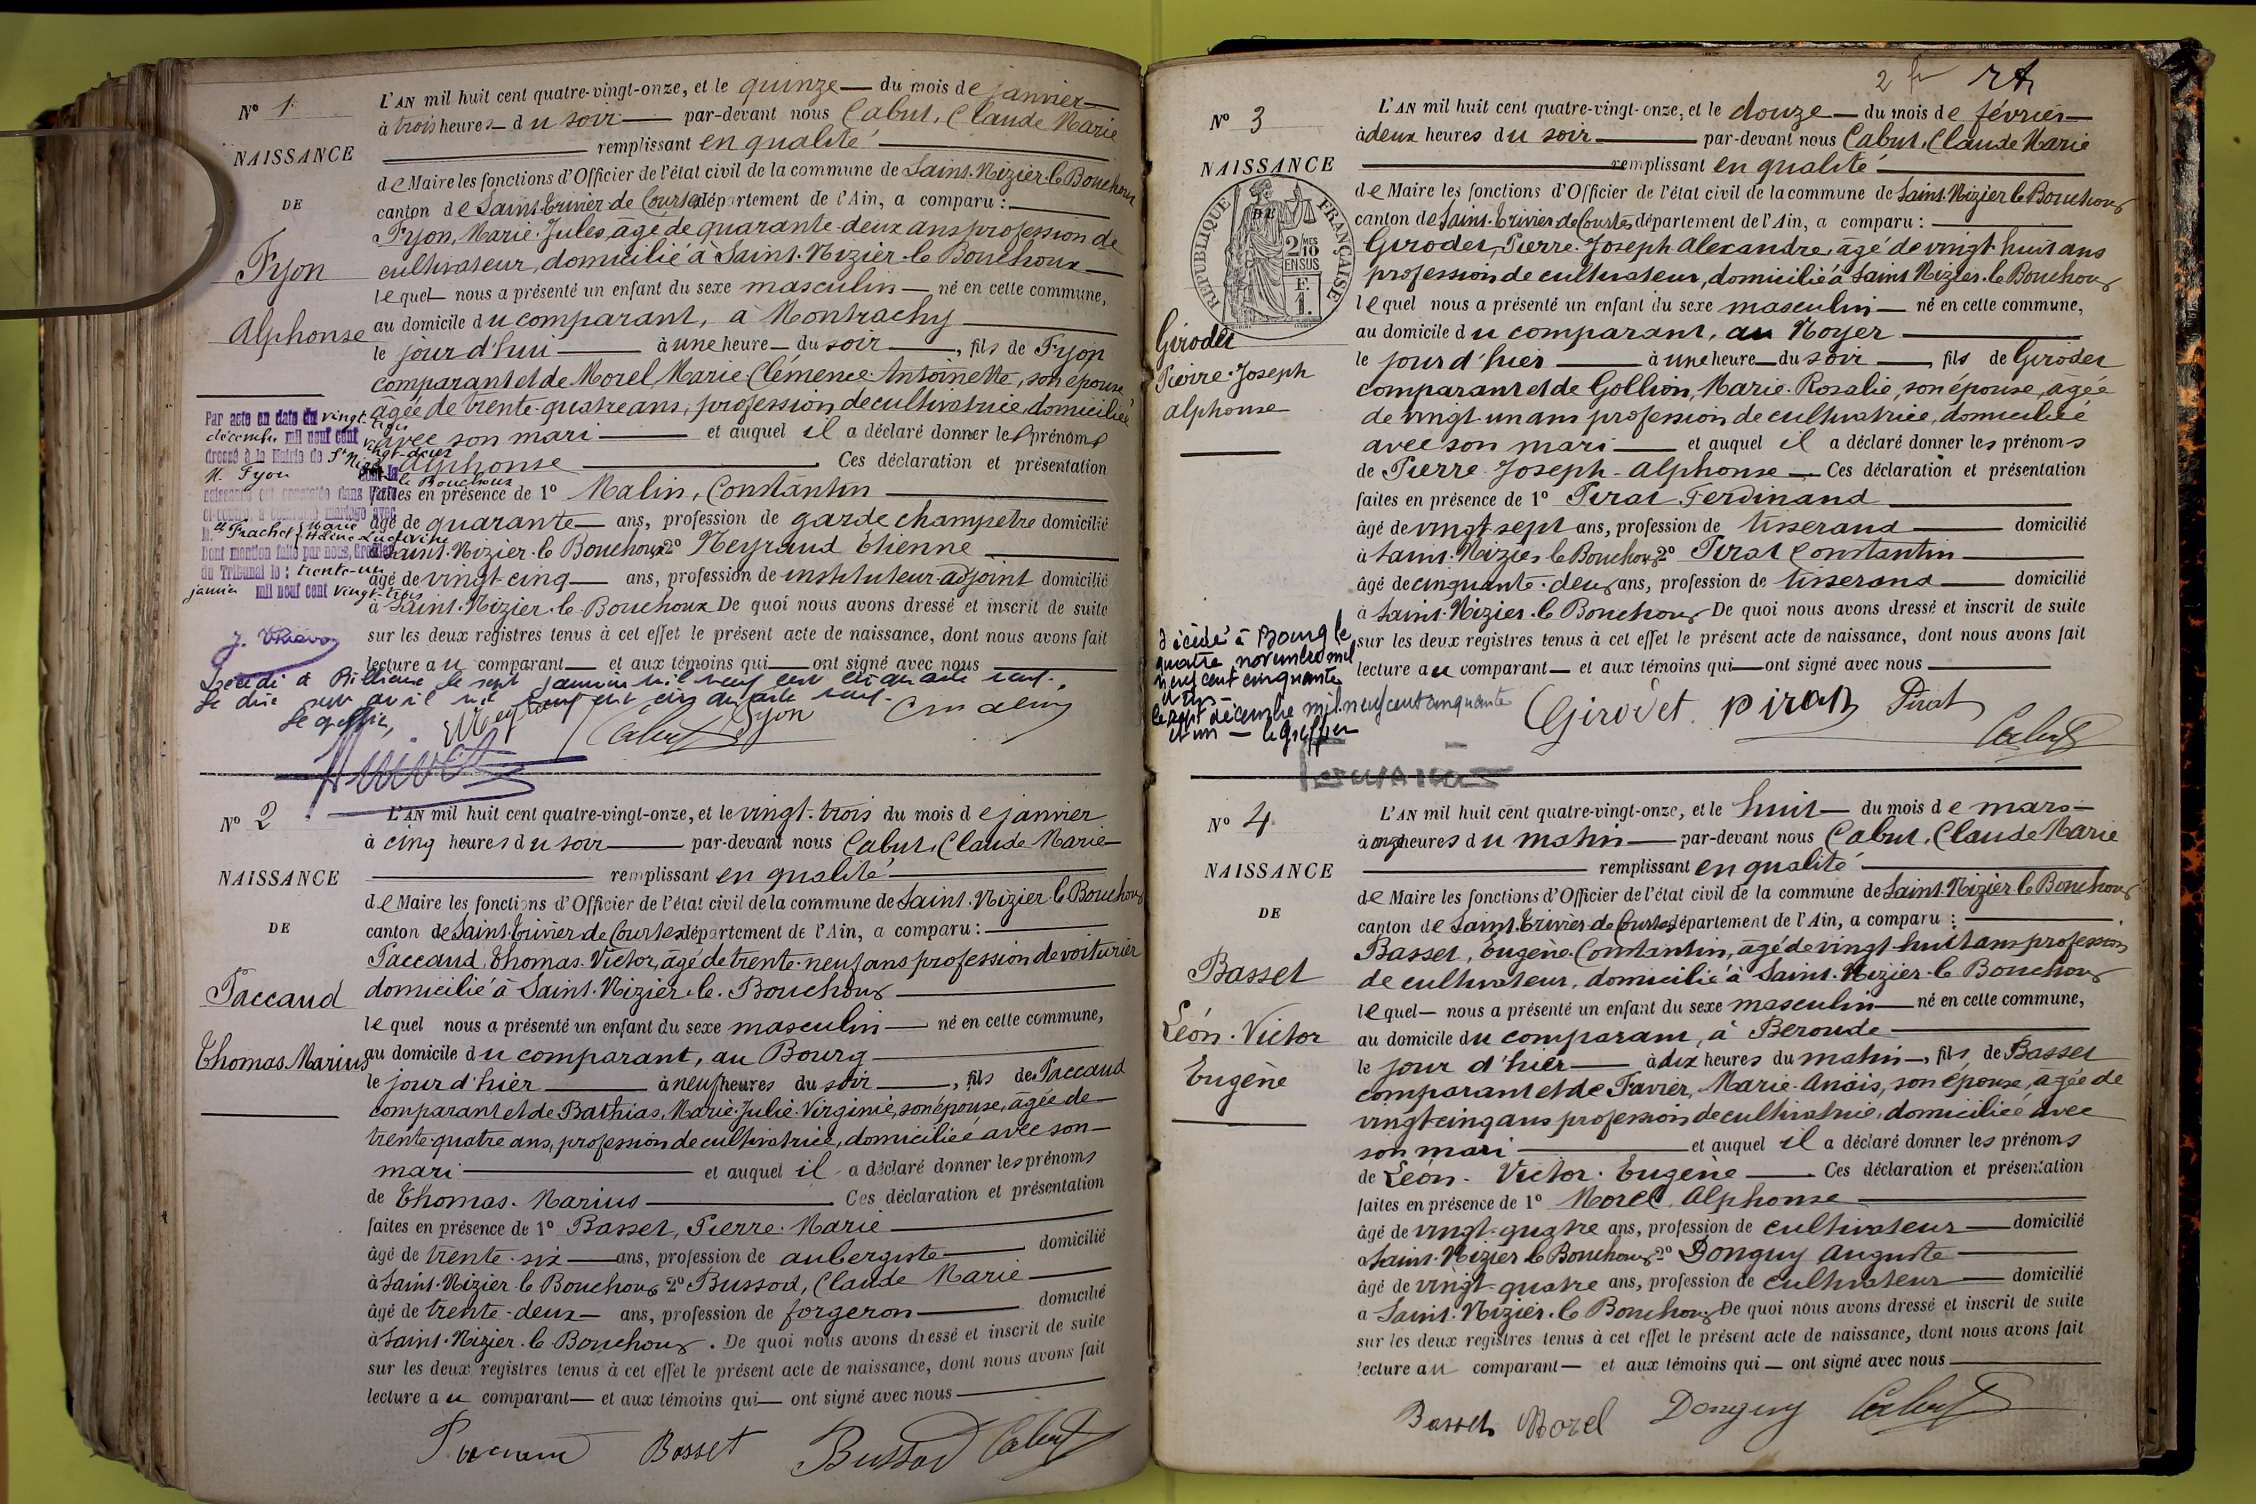 N° 1
NAISSANCE
DE
Fyon
Alphonse
L'AN mil huit cent quatre-vingt-onze, et le quinze du mois de janvier
à trois heures du soir par-devant nous Cabut, Claude Marie
remplissant en qualité
de Maire les fonctions d'Officier de l'état civil de la commune de Saint-Nizier-le-Bouchoux
canton de Saint-Trivier de Courtes département de l'Ain, a comparu :
Fyon, Marie-Jules, âgé de quarante-deux ans profession de
cultivateur, domicilié à Saint-Nizier-le-Bouchoux
lequel nous a présenté un enfant du sexe masculin né en cette commune,
au domicile du comparant, à Montrachy
le jour d'hui à une heure du soir, fils de Fyon
comparant et de Morel, Marie-Clémence-Antoinette, son épouse
âgée de trente-quatre ans, profession de cultivatrice, domiciliée
avec son mari et auquel il a déclaré donner le prénom
Alphonse Ces déclaration et présentation
faites en présence de 1° Malin, Constantin
âgé de quarante ans, profession de garde champêtre domicilié
à Saint-Nizier-le-Bouchoux 2° Neyraud Etienne
âgé de vingt-cinq ans, profession de instituteur-adjoint domicilié
à Saint-Nizier-le-Bouchoux De quoi nous avons dressé et inscrit de suite
sur les deux registres tenus à cet effet le présent acte de naissance, dont nous avons fait
lecture au comparant et aux témoins qui ont signé avec nous
Par acte en date du vingt-trois
décembre mil neuf cent vingt-deux
dressé à la Mairie de St Nizier
le Bouchoux
M. Fyon dont la
naissance est constatée dans l'acte
ci-contre, a contracté mariage avec
Melle Frachet Marie
Dont mention faite par nous, Greffier
du Tribunal le : trente-un
janvier mil neuf cent vingt-trois
Le greffier,
Cabut Fyon
N° 2
NAISSANCE
DE
Paccaud
Thomas Marius
L'AN mil huit cent quatre-vingt-onze, et le vingt-trois du mois de janvier
à cinq heures du soir par-devant nous Cabut, Claude Marie
remplissant en qualité
de Maire les fonctions d'Officier de l'état civil de la commune de Saint-Nizier-le-Bouchoux
canton de Saint-Trivier de Courtes département de l'Ain, a comparu :
Paccaud, Thomas-Victor, âgé de trente-neuf ans profession de voiturier
domicilié à Saint-Nizier-le-Bouchoux
lequel nous a présenté un enfant du sexe masculin né en cette commune,
au domicile du comparant, au Bourg
le jour d'hier à neuf heures du soir, fils de Paccaud
comparant et de Bathias, Marie-Julie-Virginie, son épouse, âgée de
trente-quatre ans, profession de cultivatrice, domiciliée avec son
mari et auquel il a déclaré donner les prénoms
de Thomas-Marius Ces déclaration et présentation
faites en présence de 1° Basset, Pierre-Marie
âgé de trente-six ans, profession de aubergiste domicilié
à Saint-Nizier-le-Bouchoux 2° Bussod, Claude Marie
âgé de trente-deux ans, profession de forgeron domicilié
à Saint-Nizier-le-Bouchoux. De quoi nous avons dressé et inscrit de suite
sur les deux registres tenus à cet effet le présent acte de naissance, dont nous avons fait
lecture au comparant et aux témoins qui ont signé avec nous
Paccaud Basset Bussod Cabut
2
N° 3
NAISSANCE
DE
RÉPUBLIQUE FRANÇAISE
2 10MES
EN SUS
F.
1.
Girodet
Pierre-Joseph
Alphonse
L'AN mil huit cent quatre-vingt-onze, et le douze du mois de février
à deux heures du soir par-devant nous Cabut, Claude Marie
remplissant en qualité
de Maire les fonctions d'Officier de l'état civil de la commune de Saint-Nizier-le-Bouchoux
canton de Saint-Trivier de Courtes département de l'Ain, a comparu :
Girodet, Pierre-Joseph Alexandre, âgé de vingt-huit ans
profession de cultivateur, domicilié à Saint-Nizier-le-Bouchoux
lequel nous a présenté un enfant du sexe masculin né en cette commune,
au domicile du comparant, au Noyer
le jour d'hier à une heure du soir, fils de Girodet
comparant et de Gollion, Marie-Rosalie, son épouse, âgée
de vingt-un ans profession de cultivatrice, domiciliée
avec son mari et auquel il a déclaré donner les prénoms
de Pierre-Joseph-Alphonse Ces déclaration et présentation
faites en présence de 1° Pirat Ferdinand
âgé de vingt-sept ans, profession de tisserand domicilié
à Saint-Nizier-le-Bouchoux 2° Pirat Constantin
âgé de cinquante-deux ans, profession de tisserand domicilié
à Saint-Nizier-le-Bouchoux De quoi nous avons dressé et inscrit de suite
sur les deux registres tenus à cet effet le présent acte de naissance, dont nous avons fait
lecture au comparant et aux témoins qui ont signé avec nous
décédé à Bourg le
quatre novembre mil
neuf cent cinquante
et un
le sept décembre mil neuf cent cinquante
et un le Greffier
Girodet Pirat Pirat
Cabut
N° 4
NAISSANCE
DE
Basset
Léon-Victor
Eugène
L'AN mil huit cent quatre-vingt-onze, et le huit du mois de mars
à onze heures du matin par-devant nous Cabut, Claude Marie
remplissant en qualité
de Maire les fonctions d'Officier de l'état civil de la commune de Saint-Nizier-le-Bouchoux
canton de Saint-Trivier de Courtes département de l'Ain, a comparu :
Basset, Eugène-Constantin, âgé de vingt-huit ans profession
de cultivateur, domicilié à Saint-Nizier-le-Bouchoux
lequel nous a présenté un enfant du sexe masculin né en cette commune,
au domicile du comparant, à Beroude
le jour d'hier à dix heures du matin, fils de Basset
comparant et de Favier, Marie-Anaïs, son épouse, âgée de
vingt-cinq ans profession de cultivatrice, domiciliée avec
son mari et auquel il a déclaré donner les prénoms
de Léon-Victor-Eugène Ces déclaration et présentation
faites en présence de 1° Morel, Alphonse
âgé de vingt-quatre ans, profession de cultivateur domicilié
à Saint-Nizier-le-Bouchoux 2° Donguy Auguste
âgé de vingt-quatre ans, profession de cultivateur domicilié
à Saint-Nizier-le-Bouchoux De quoi nous avons dressé et inscrit de suite
sur les deux registres tenus à cet effet le présent acte de naissance, dont nous avons fait
lecture au comparant et aux témoins qui ont signé avec nous
Basset Morel Donguy Cabut